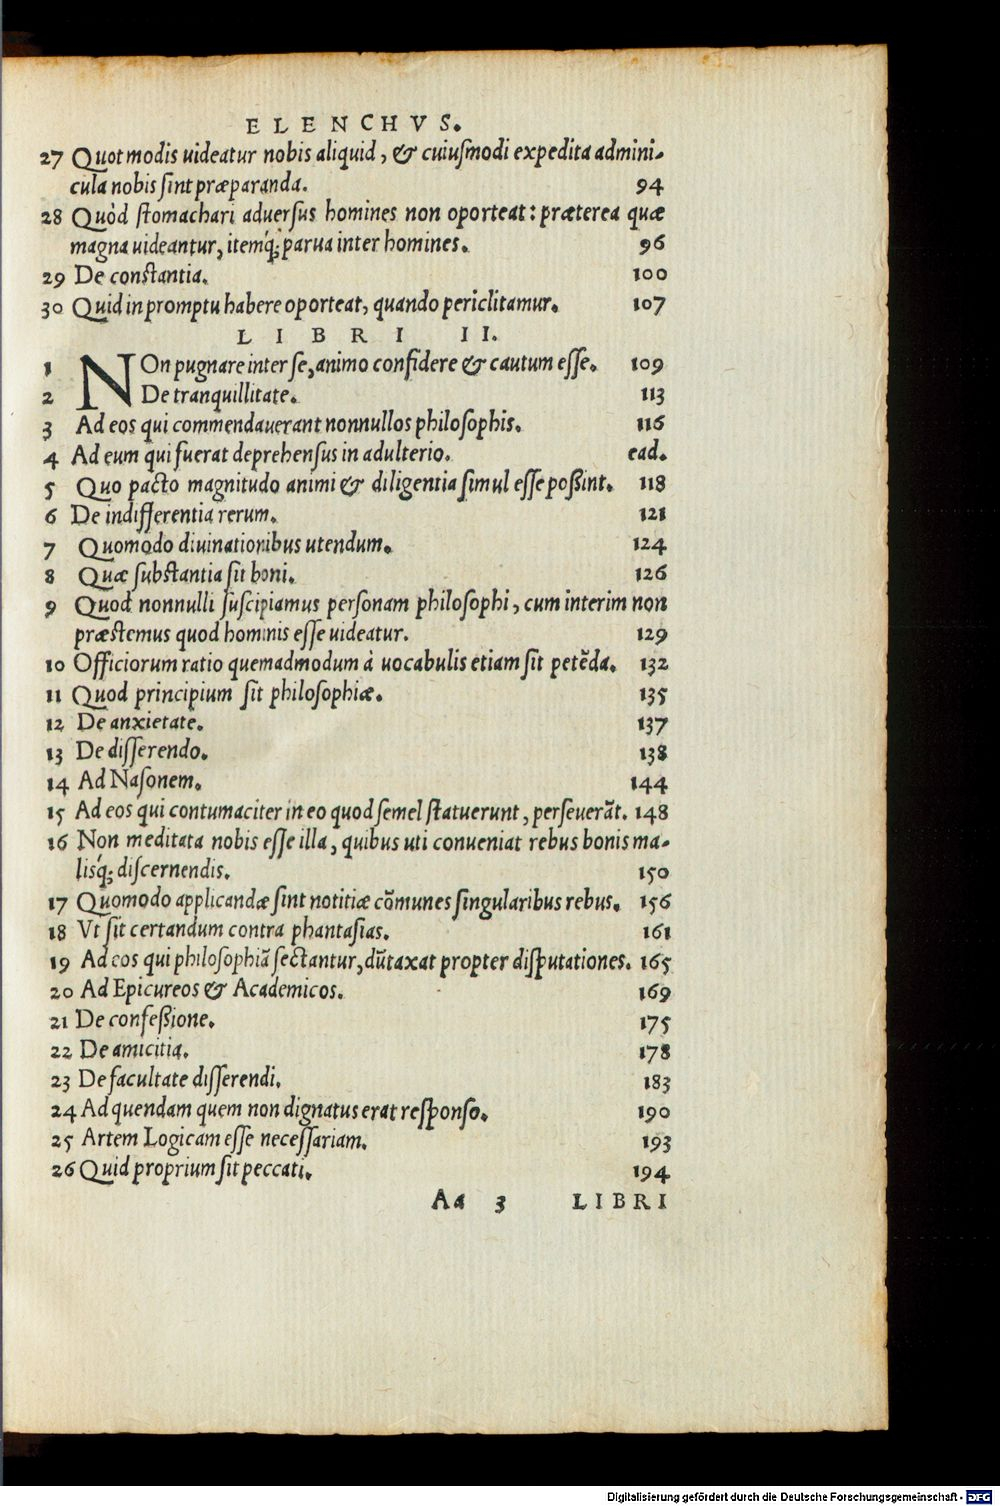 ELENCHVS.
27 Quot modis uideatur nobis aliquid, & cuiusmodi expedita admini-
cula nobis sint præparanda. 94
28 Quòd stomachari aduersus homines non oporteat: præterea quæ
magna uideantur, itemq́; parua inter homines. 96
29 De constantia. 100
30 Quid in promptu habere oporteat, quando periclitamur. 107
LIBRI II.
1 NOn pugnare inter se, animo confidere & cautum esse. 109
2 De tranquillitate. 113
3 Ad eos qui commendauerant nonnullos philosophis. 116
4 Ad eum qui fuerat deprehensus in adulterio. ead.
5 Quo pacto magnitudo animi & diligentia simul esse poßint. 118
6 De indifferentia rerum. 121
7 Quomodo diuinationibus utendum. 124
8 Quæ substantia sit boni. 126
9 Quod nonnulli suscipiamus personam philosophi, cum interim non
præstemus quod hominis esse uideatur. 129
10 Officiorum ratio quemadmodum à uocabulis etiam sit petẽda. 132
11 Quod principium sit philosophiæ. 135
12 De anxietate. 137
13 De disserendo. 138
14 Ad Nasonem. 144
15 Ad eos qui contumaciter in eo quod semel statuerunt, perseuerãt. 148
16 Non meditata nobis esse illa, quibus uti conueniat rebus bonis ma-
lisq́; discernendis. 150
17 Quomodo applicandæ sint notitiæ cõmunes singularibus rebus. 156
18 Vt sit certandum contra phantasias. 161
19 Ad eos qui philosophiã sectantur, dũtaxat propter disputationes. 165
20 Ad Epicureos & Academicos. 169
21 De confeßione. 175
22 De amicitia. 178
23 De facultate disserendi. 183
24 Ad quendam quem non dignatus erat responso. 190
25 Artem Logicam esse necessariam. 193
26 Quid proprium sit peccati. 194
Aa 3 LIBRI
Digitalisierung gefördert durch die Deutsche Forschungsgemeinschaft - DFG